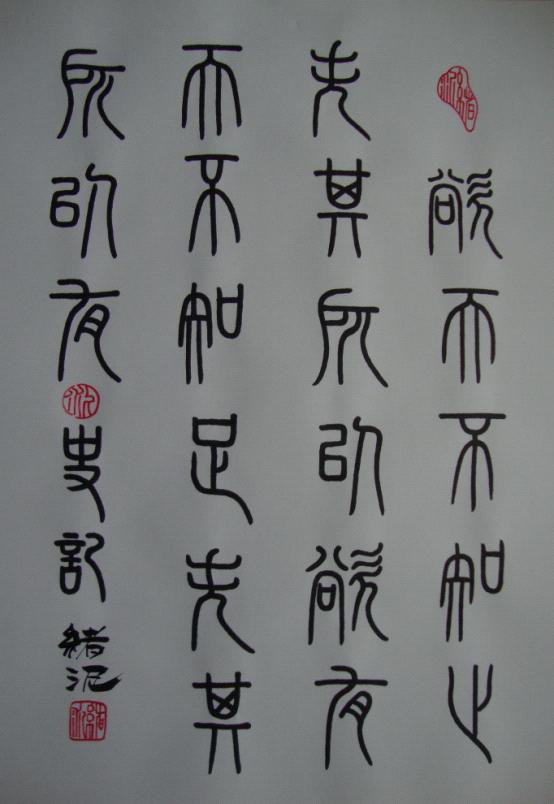 欲而不知止
失其所以欲有
而不知足失其
所以有史記緒泥